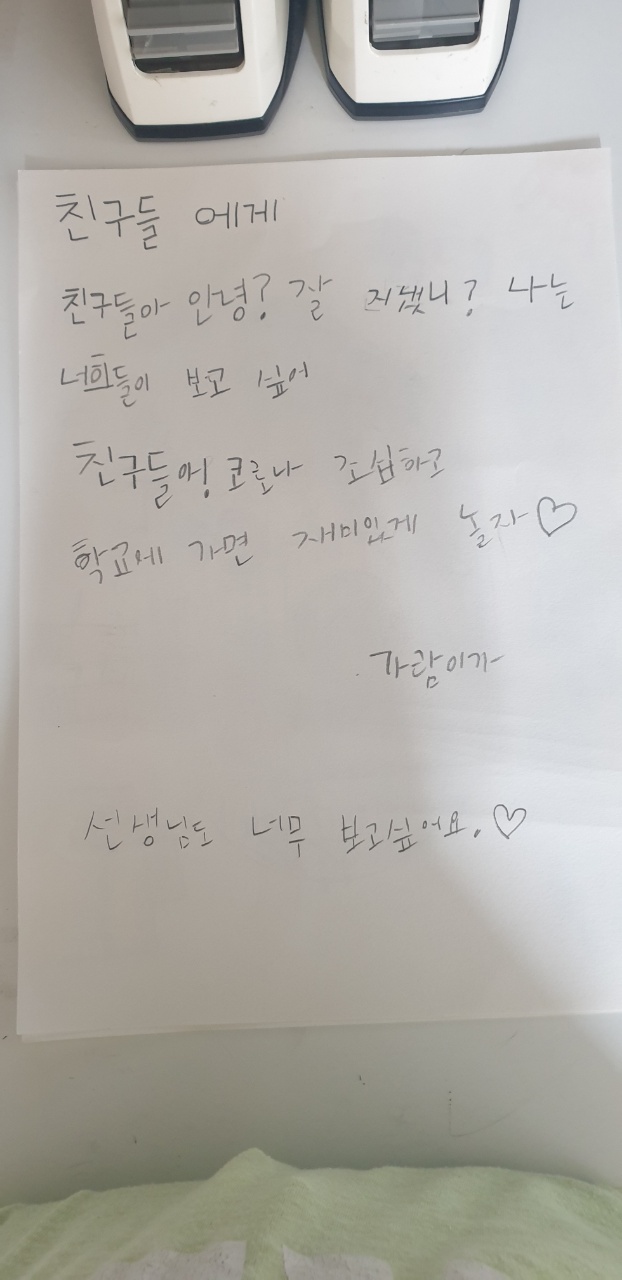 친구들 에게
친구들아 안녕? 잘 지냈니? 나는
너희들이 보고 싶어
친구들아! 코로나 조심하고
학교에 가면 재미있게 놀자♡
가람이가
선생님도 너무 보고싶어요.♡